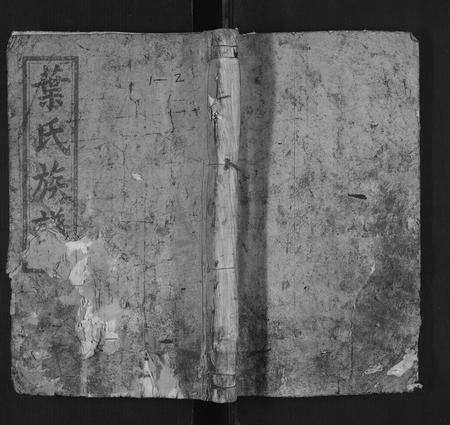 葉氏族譜
1-2